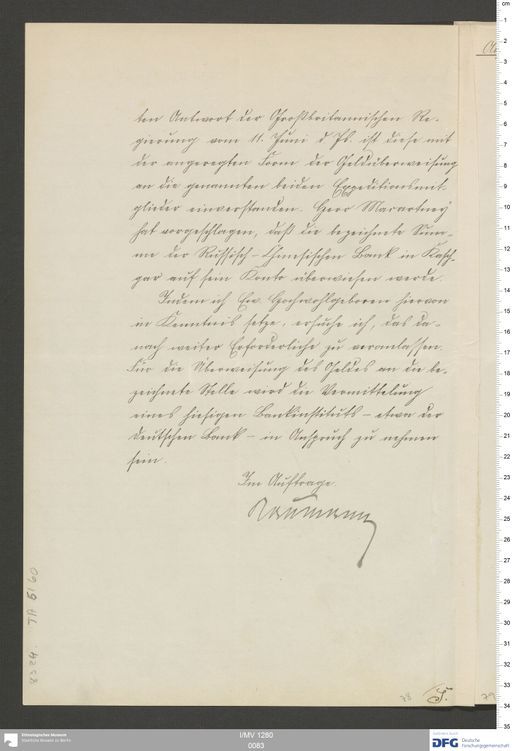 ten Antwort der Großbritannischen Re-
gierung vom 11. Juni d. Js. ist diese mit
der angeregten Form der Geldüberweisung
an die genannten beiden Expeditionsmit-
glieder einverstanden. Herr Macartney
hat vorgeschlagen, daß die bezeichnete Sum-
me der Russisch-Chinesischen Bank in Kasch-
gar auf sein Konto überwiesen werde.
Indem ich Ew. Hochwohlgeboren hiervon
in Kenntnis setze, ersuche ich, das da-
nach weiter Erforderliche zu veranlassen.
Für die Überweisung des Geldes an die be-
zeichnete Stelle wird die Vermittelung
eines hiesigen Bankinstituts – etwa der
Deutschen Bank – in Anspruch zu nehmen
sein.
Im Auftrage.
Naumann
78
79
Ethnologisches Museum
Staatliche Museen zu Berlin
I/MV 1280
0083
DFG Deutsche
Forschungsgemeinschaft
cm
1
2
3
4
5
6
7
8
9
10
11
12
13
14
15
16
17
18
19
20
21
22
23
24
25
26
27
28
29
30
31
32
33
34
35